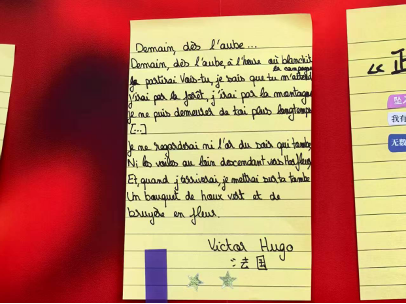 Demain, dès l'aube...
Demain, dès l'aube, à l'heure où blanchit
la campagne
Je partirai Vois-tu, je sais que tu m'attends
J'irai par la forêt, j'irai par la montagne
Je ne puis demeurer de toi plus longtemps
[...]
Je ne regarderai ni l'or du soir qui tombe
Ni les voiles au loin descendant vers Harfleur
Et, quand j'arriverai, je mettrai sur ta tombe
Un bouquet de houx vert et de
bruyère en fleur.
Victor Hugo
法国
《正
坠入
我有
无数